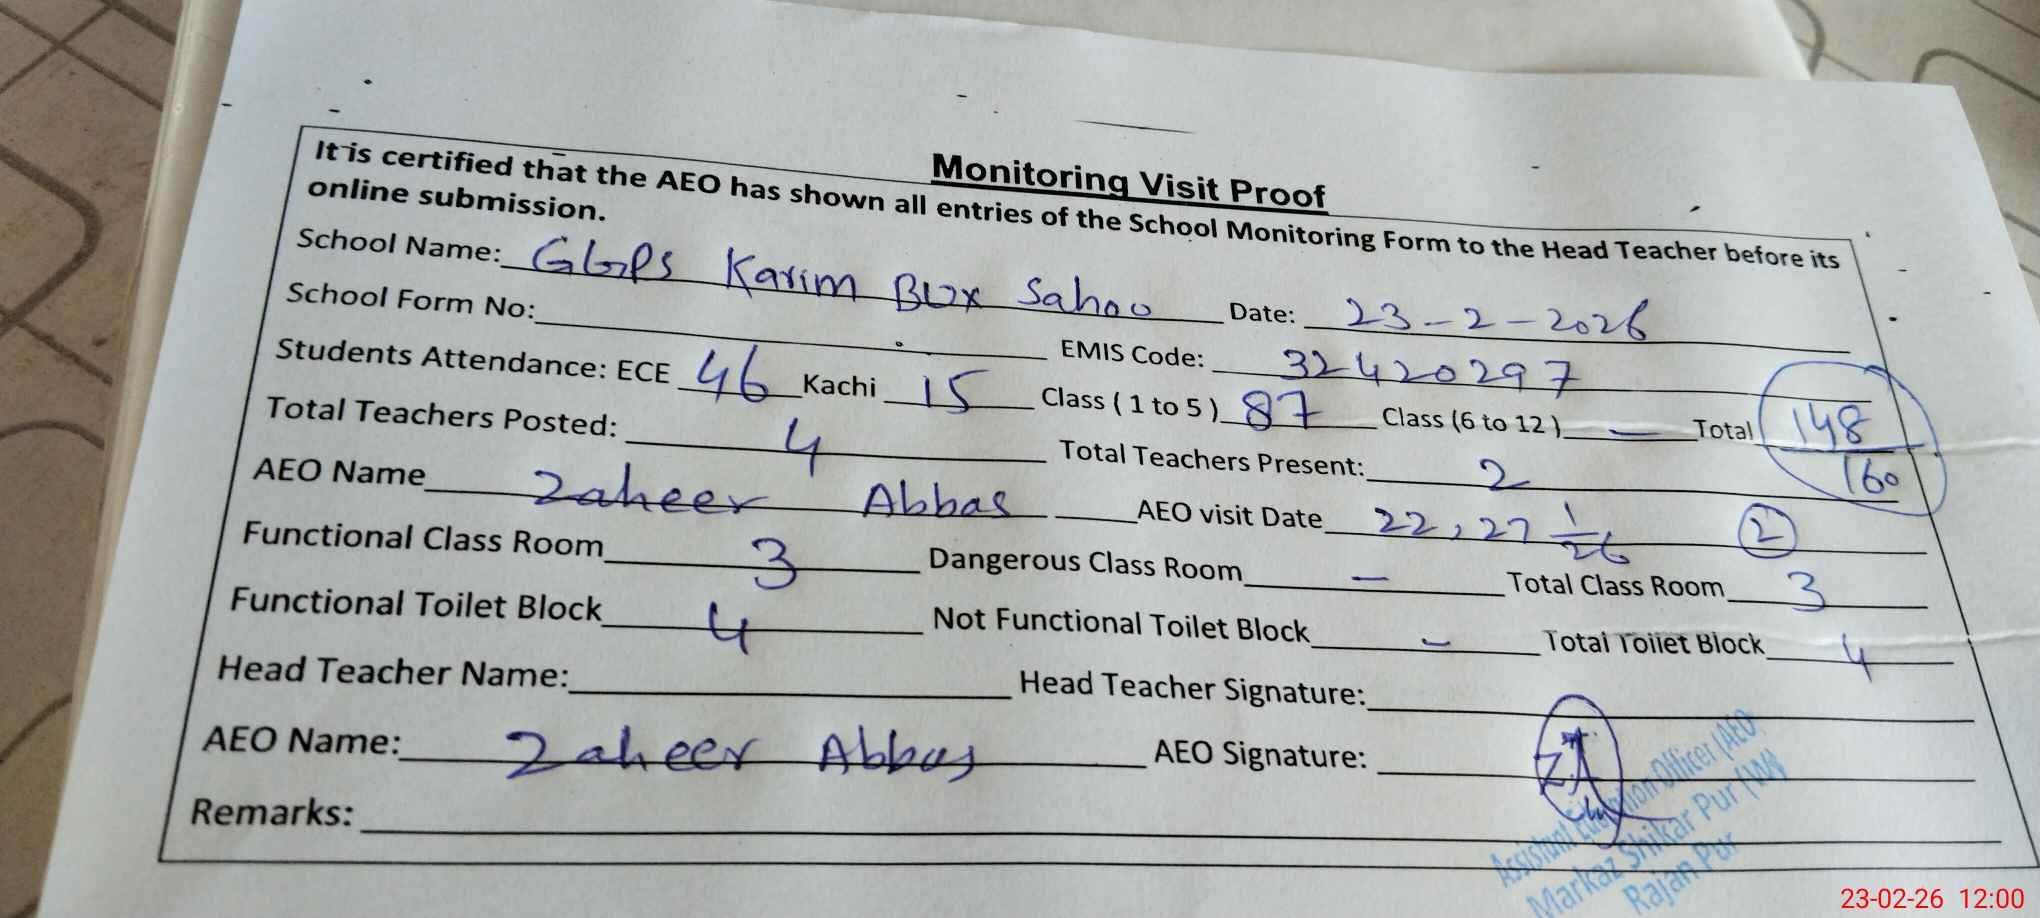 Monitoring Visit Proof
It is certified that the AEO has shown all entries of the School Monitoring Form to the Head Teacher before its
online submission.
School Name: GGPS Karim Bux Sahoo Date: 23-2-2026
School Form No: EMIS Code: 32420297
Students Attendance: ECE 46 Kachi 15 Class ( 1 to 5 ) 87 Class (6 to 12 ) – Total 148
160
Total Teachers Posted: 4 Total Teachers Present: 2
AEO Name Zaheer Abbas AEO visit Date 22, 27 1/26 2
Functional Class Room 3 Dangerous Class Room – Total Class Room 3
Functional Toilet Block 4 Not Functional Toilet Block – Total Toilet Block 4
Head Teacher Name: Head Teacher Signature:
AEO Name: Zaheer Abbas AEO Signature: ZA
Remarks:
Assistant Education Officer (AEO)
Markaz Shikar Pur (W)
Rajan Pur
23-02-26 12:00